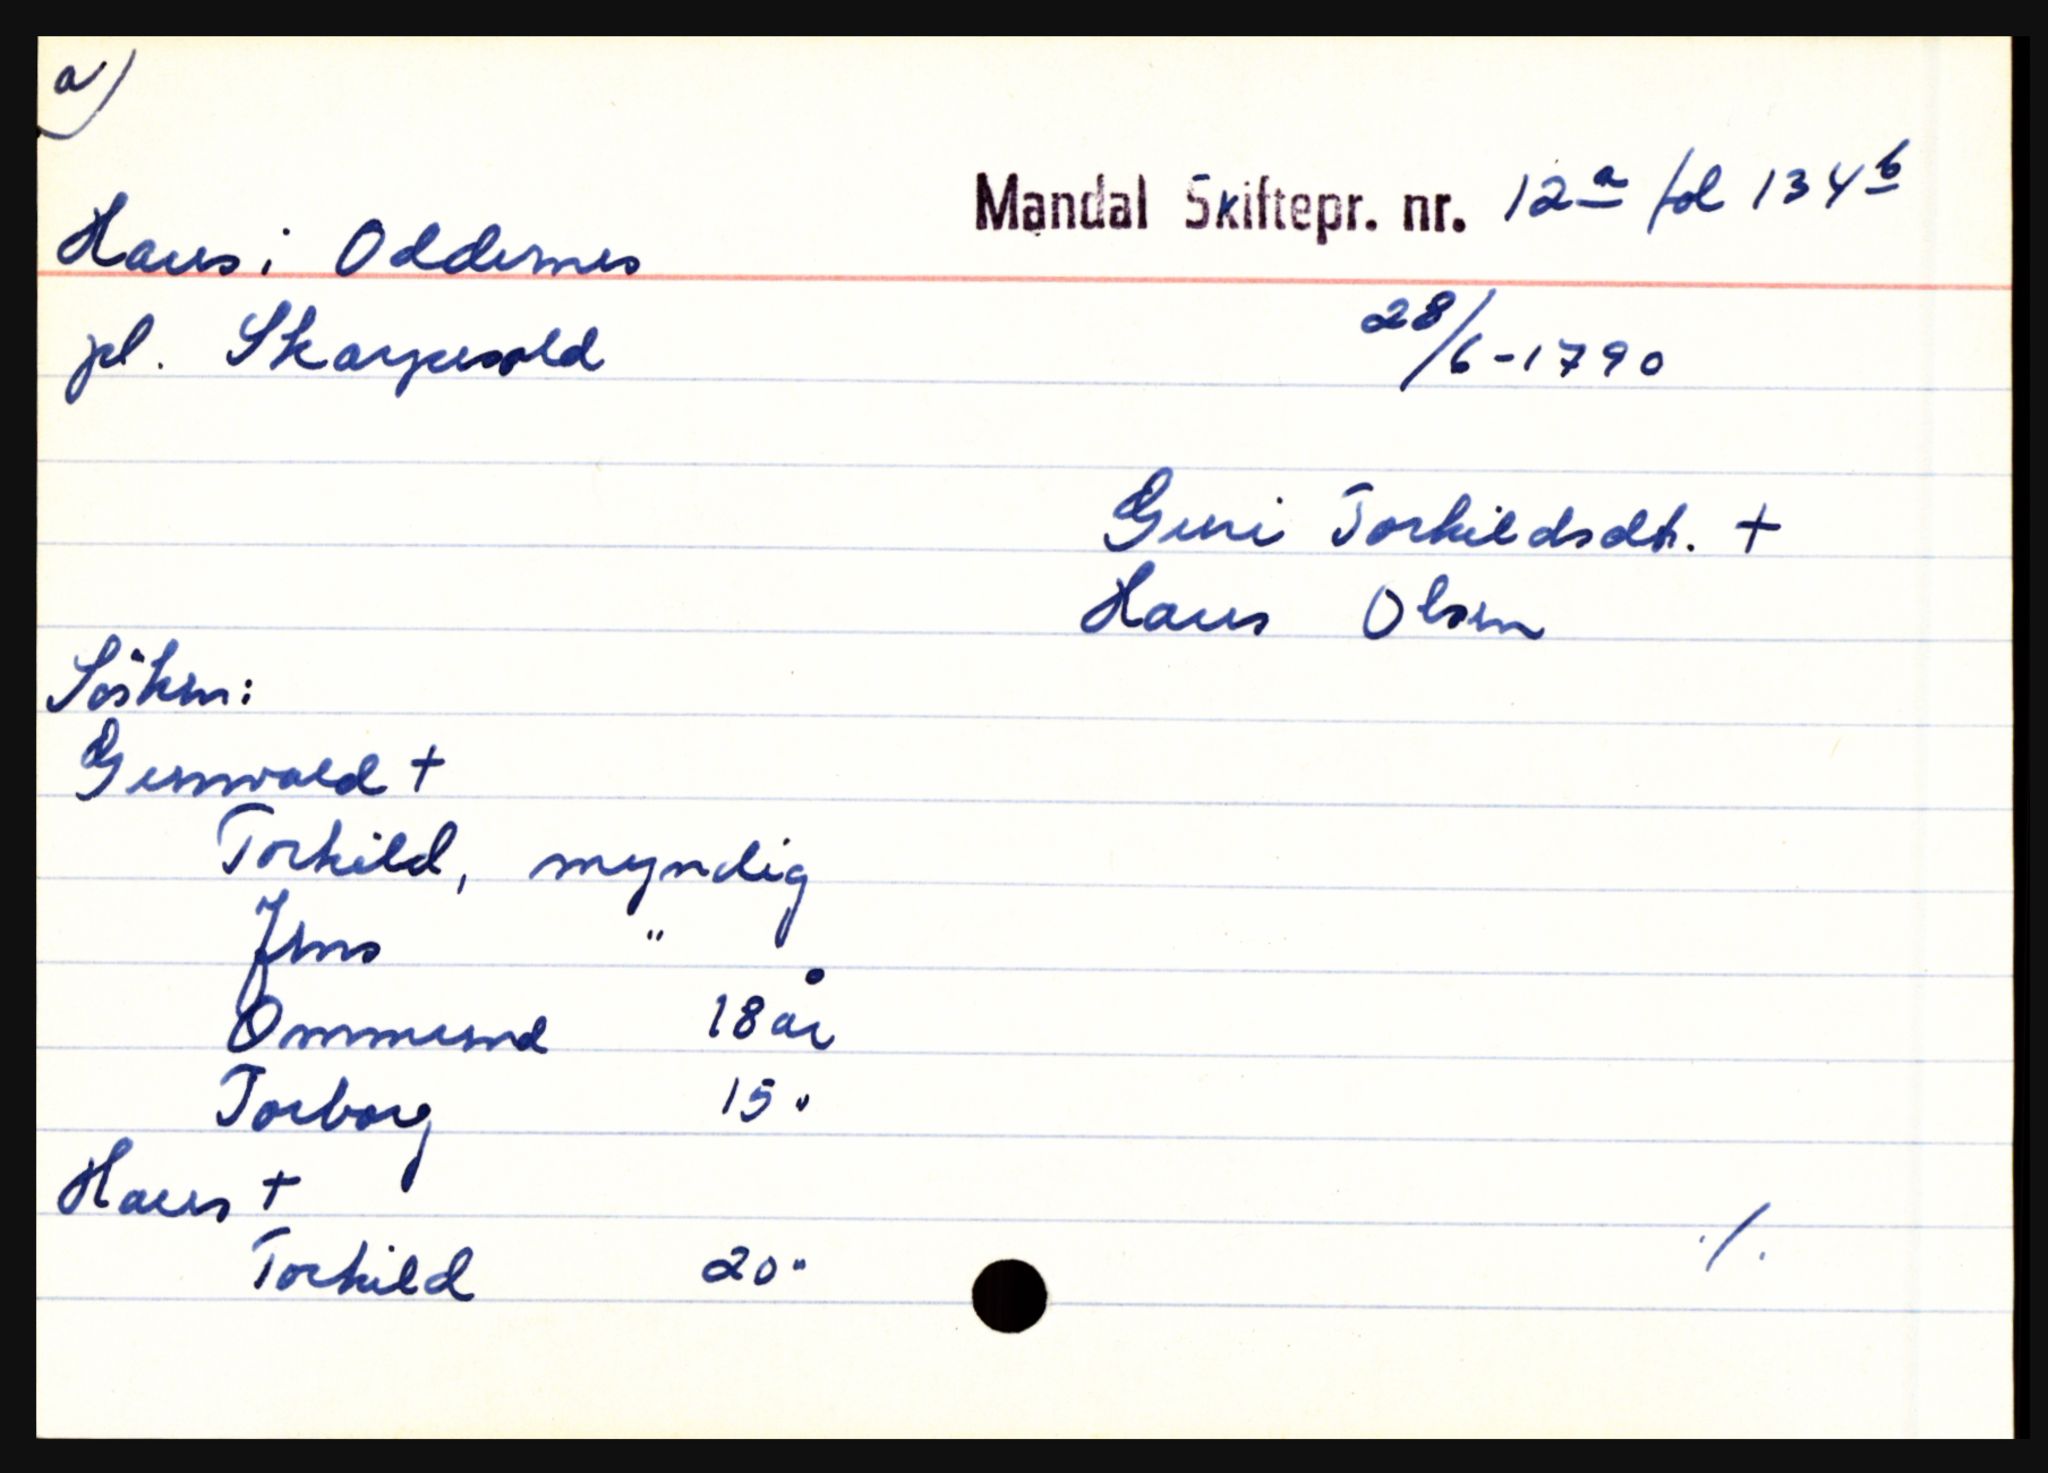 a)
Mandal Skiftepr. nr. 12a fol 134b
Haus i Oddernes
pl. Skarpevold
28/6-1790
Guri Torkildsdtr. +
Hans Olsen
Söskn:
Gunvald +
Torkild, myndig
Jens "
Ommund 18 år
Torborg 15 "
Hans +
Torkild 20 "
./.